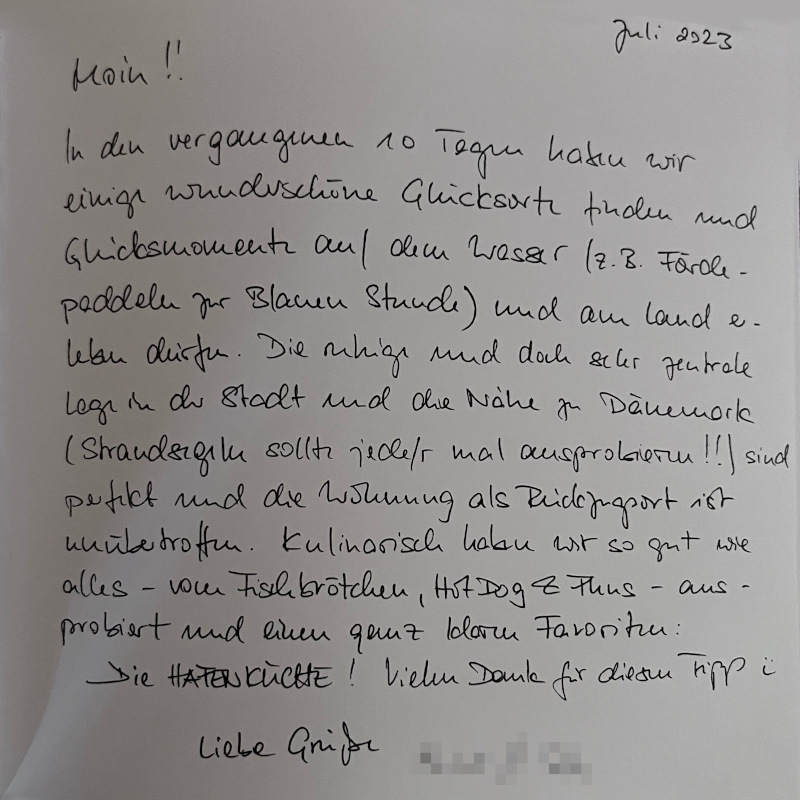 Juli 2023
Moin!!
In den vergangenen 10 Tagen haben wir
einige wunderschöne Glücksorte finden und
Glücksmomente auf dem Wasser (z.B. Förde-
paddeln zur Blauen Stunde) und am Land e-
leben dürfen. Die ruhige und doch sehr zentrale
Lage in der Stadt und die Nähe zu Dänemark
(Strandsegeln sollte jede/r mal ausprobieren!!) sind
perfekt und die Wohnung als Rückzugsort ist
unübertroffen. Kulinarisch haben wir so gut wie
alles - vom Fischbrötchen, Hot Dog & - aus-
probiert und einen ganz klaren Favoriten:
Die HAFENKÜCHE! Vielen Dank für diesen Tipp
Liebe Grüße